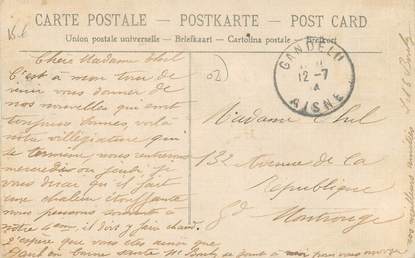 CARTE POSTALE – POSTKARTE – POST CARD
Union postale universelle – Briefkaart – Cartolina postale –
Chère Madame
C'est à mon tour de
venir vous donner de
nos nouvelles qui sont
toujours bonnes, voilà
notre villégiature qui
se termine, nous rentrerons
mercredi ou jeudi. Je
vous dirai qu'il fait
une chaleur étouffante
nous pensons souvent à
votre 6eme, il doit y faire chaud.
J'espère que vous êtes ainsi que
en bonne santé Mr se joint à moi pour vous
GANDELU
12-7
AISNE
Madame
132 Avenue de la
République
Gd Montrouge